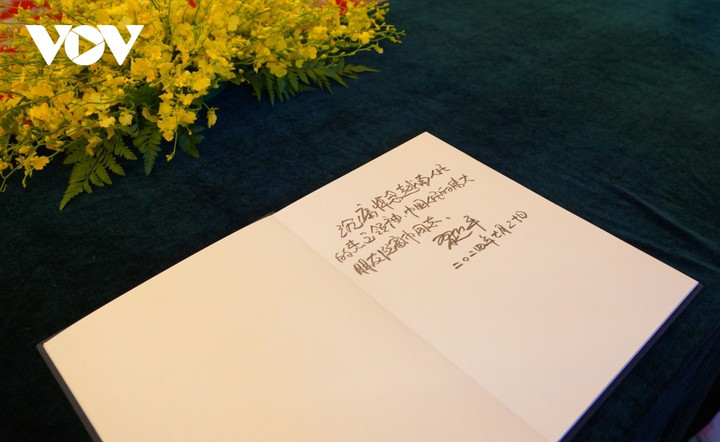 VOV
沉痛悼念越南人民
的杰出领袖、中国人民的伟大
朋友阮富仲同志。
习近平
二〇二四年七月二十日